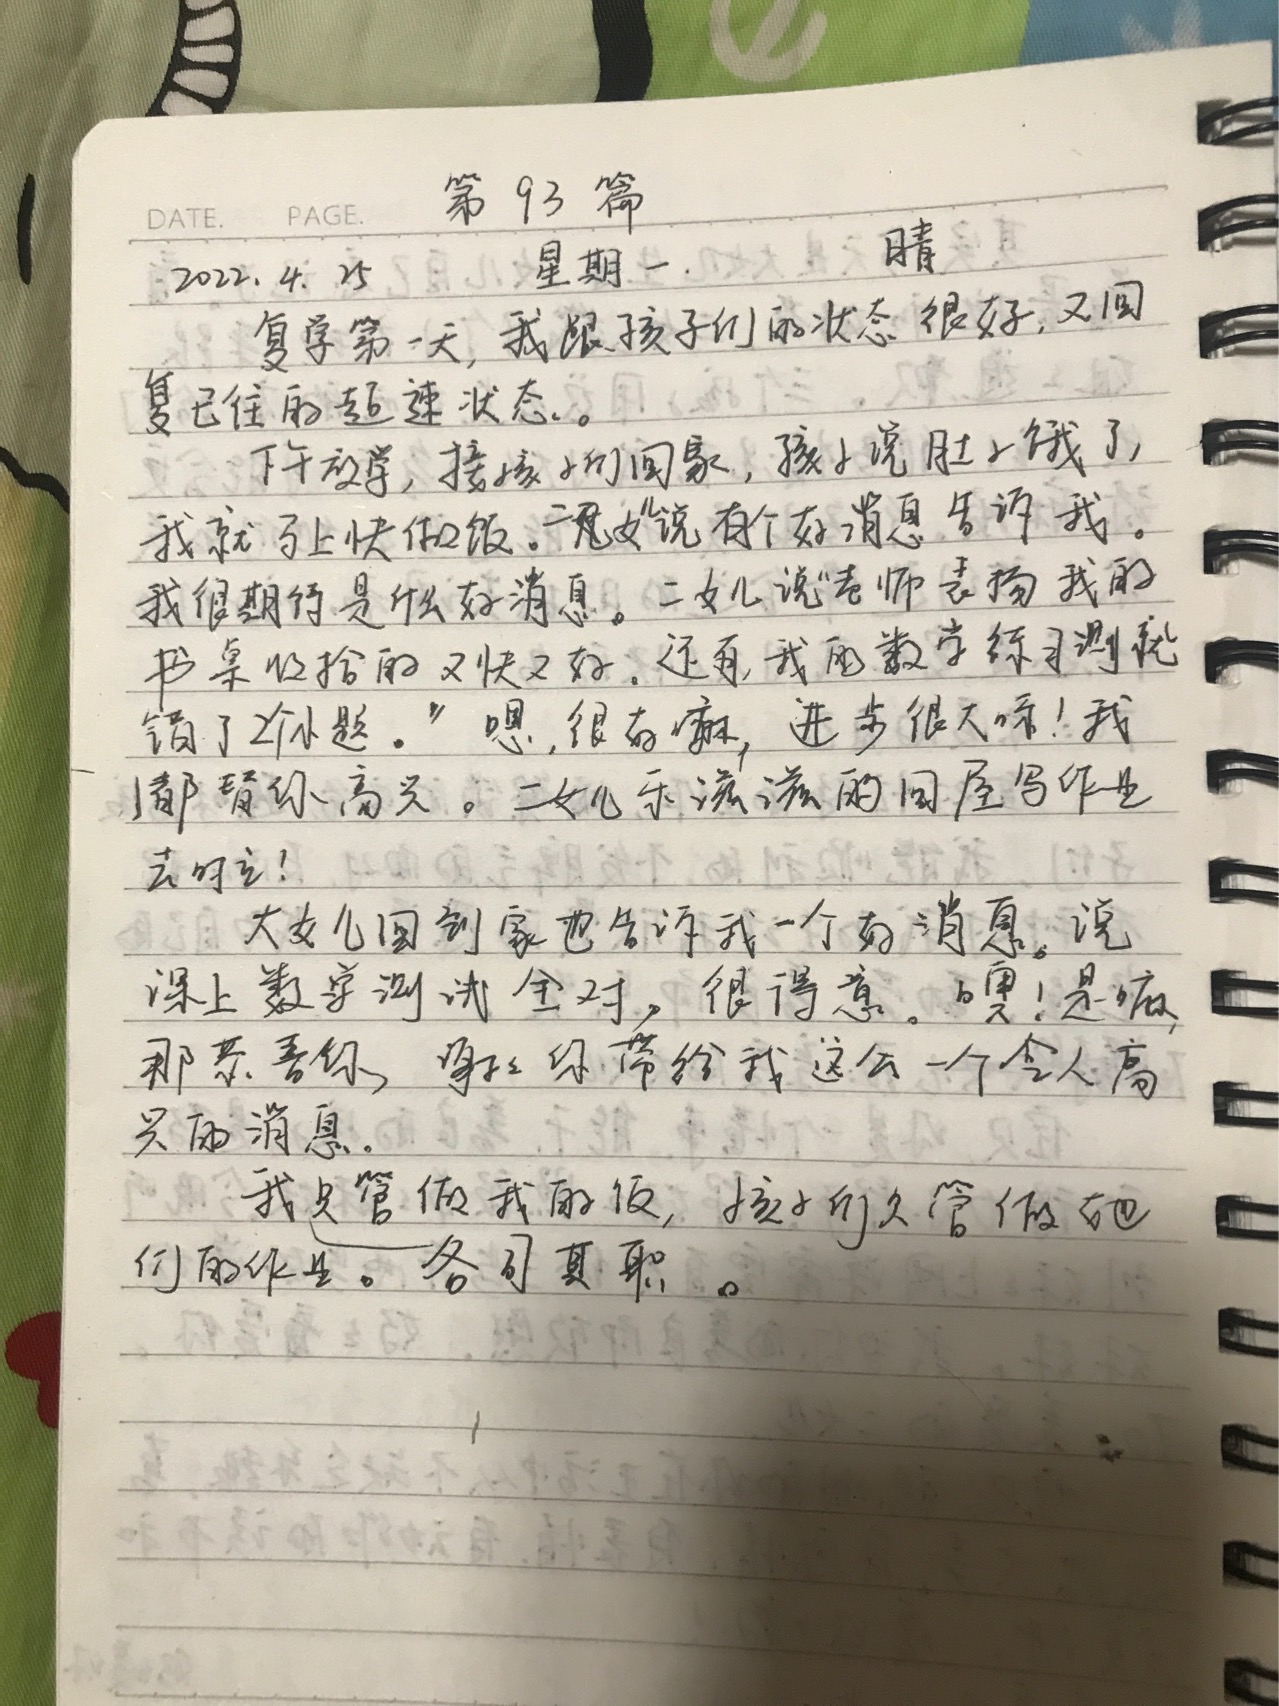 DATE. PAGE. 第93篇
2022.4.25 星期一. 晴
复学第一天,我跟孩子们的状态很好,又回
复已往的超速状态。
下午放学,接孩子们回家,孩子说肚子饿了,
我就马上快做饭。二女儿说有个好消息告诉我。
我很期待是什么好消息。二女儿说“老师表扬我的
书桌收拾的又快又好.还有,我的数学练习测就
错了2个小题。” 嗯,很好嘛,进步很大呀!我
都替你高兴。二女儿乐滋滋的回屋写作业
去时立!
大女儿回到家也告诉我一个好消息。说
课上数学测试全对,很得意。噢!是嘛,
那恭喜你,谢谢你带给我这么一个令人高
兴的消息.
我只管做我的饭,孩子们只管做他
们的作业。各司其职。